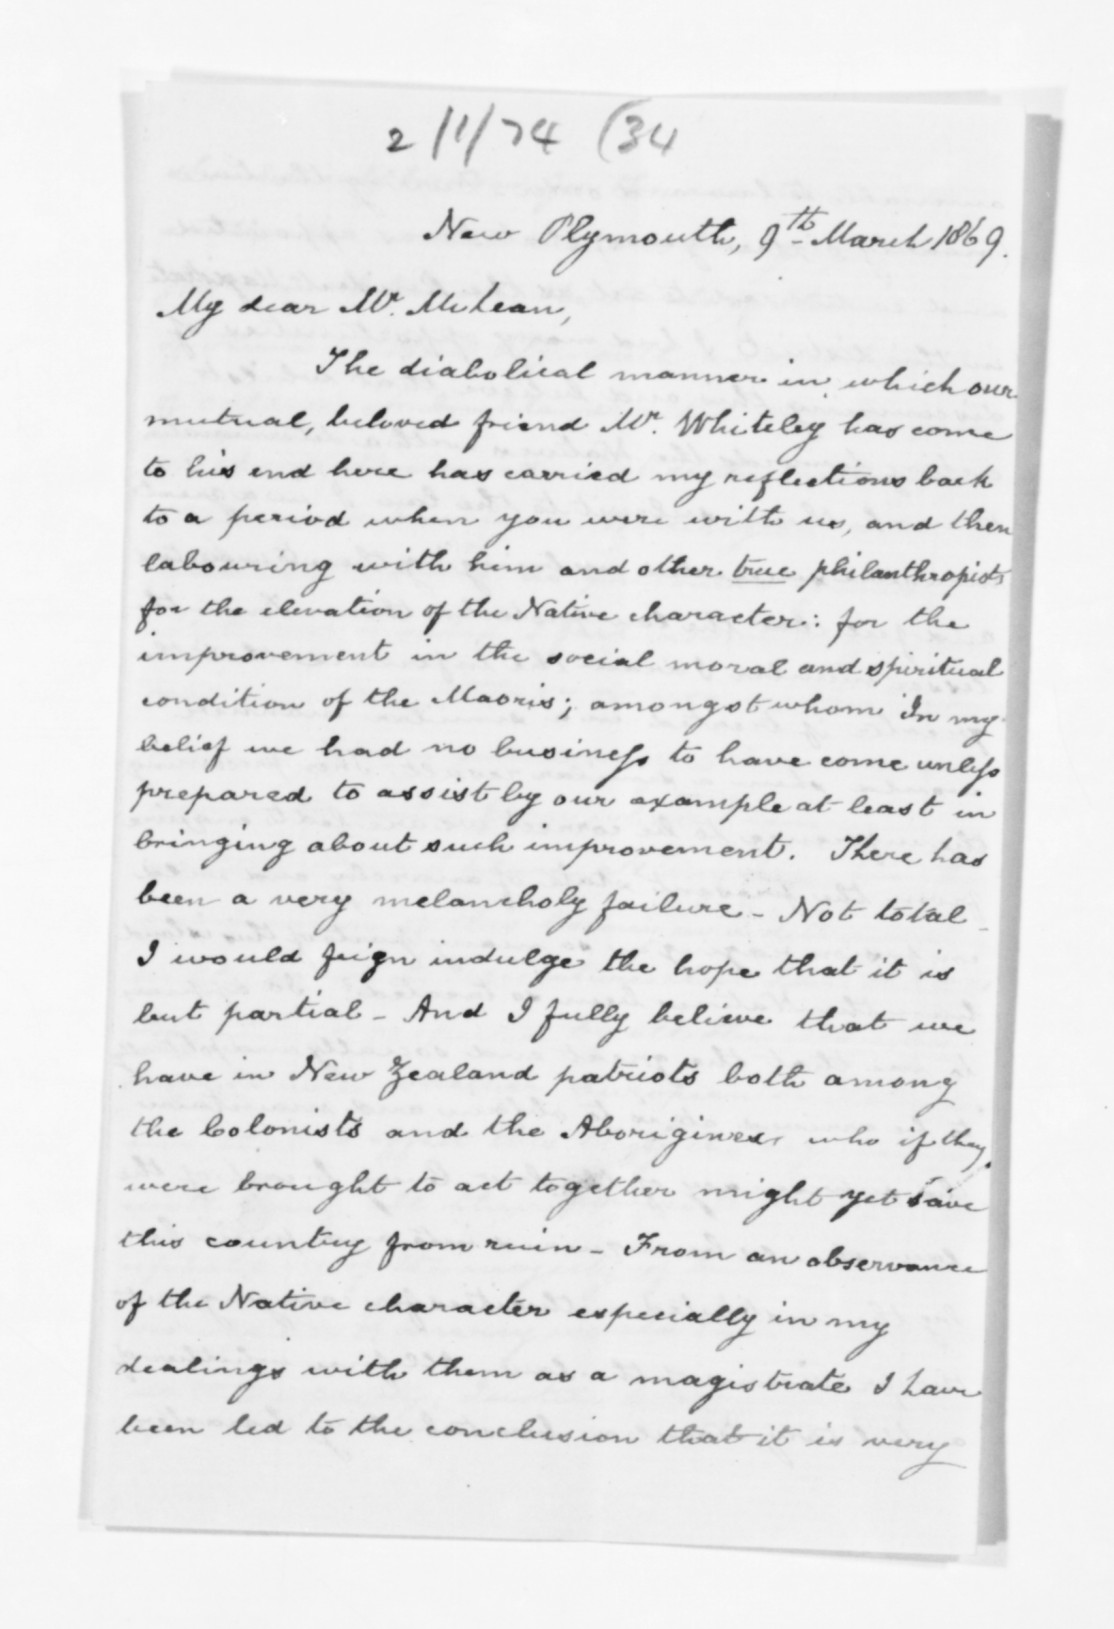 2/1/74 (34
New Plymouth, 9th March 1869.
My dear Mr. McLean,
The diabolical manner in which our
mutual, beloved friend Mr. Whiteley has come
to his end here has carried my reflections back
to a period when you were with us, and then
labouring with him and other true philanthropists
for the elevation of the Native character: for the
improvement in the social moral and spiritual
condition of the Maoris; amongst whom In my
belief we had no business to have come unless
prepared to assist by our example at least in
bringing about such improvement. There has
been a very melancholy failure - Not total -
I would feign indulge the hope that it is
but partial - And I fully believe that we
have in New Zealand patriots both among
the Colonists and the Aborigines, who if they
were brought to act together might yet save
this country from ruin - From an observance
of the Native character especially in my
dealings with them as a magistrate I have
been led to the conclusion that it is very